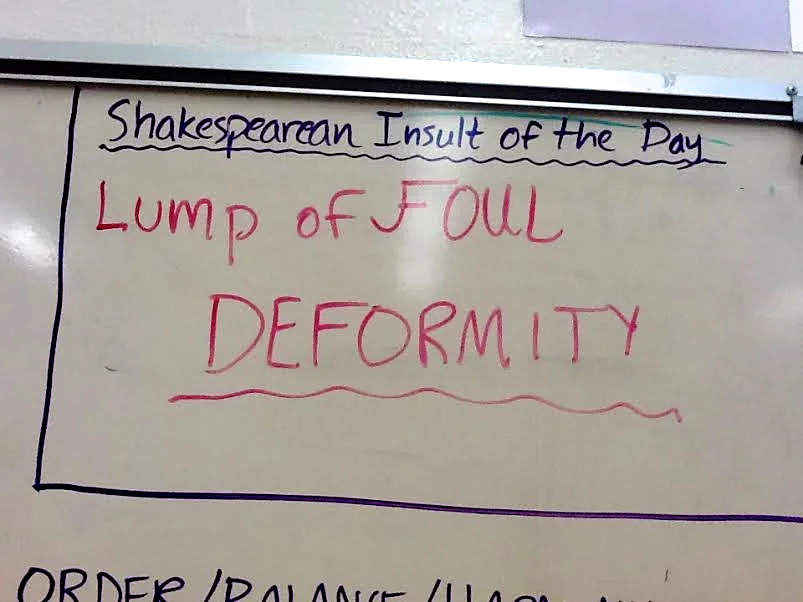 Shakespearean Insult of the Day
Lump of FOUL
DEFORMITY
ORDER/BALANCE/